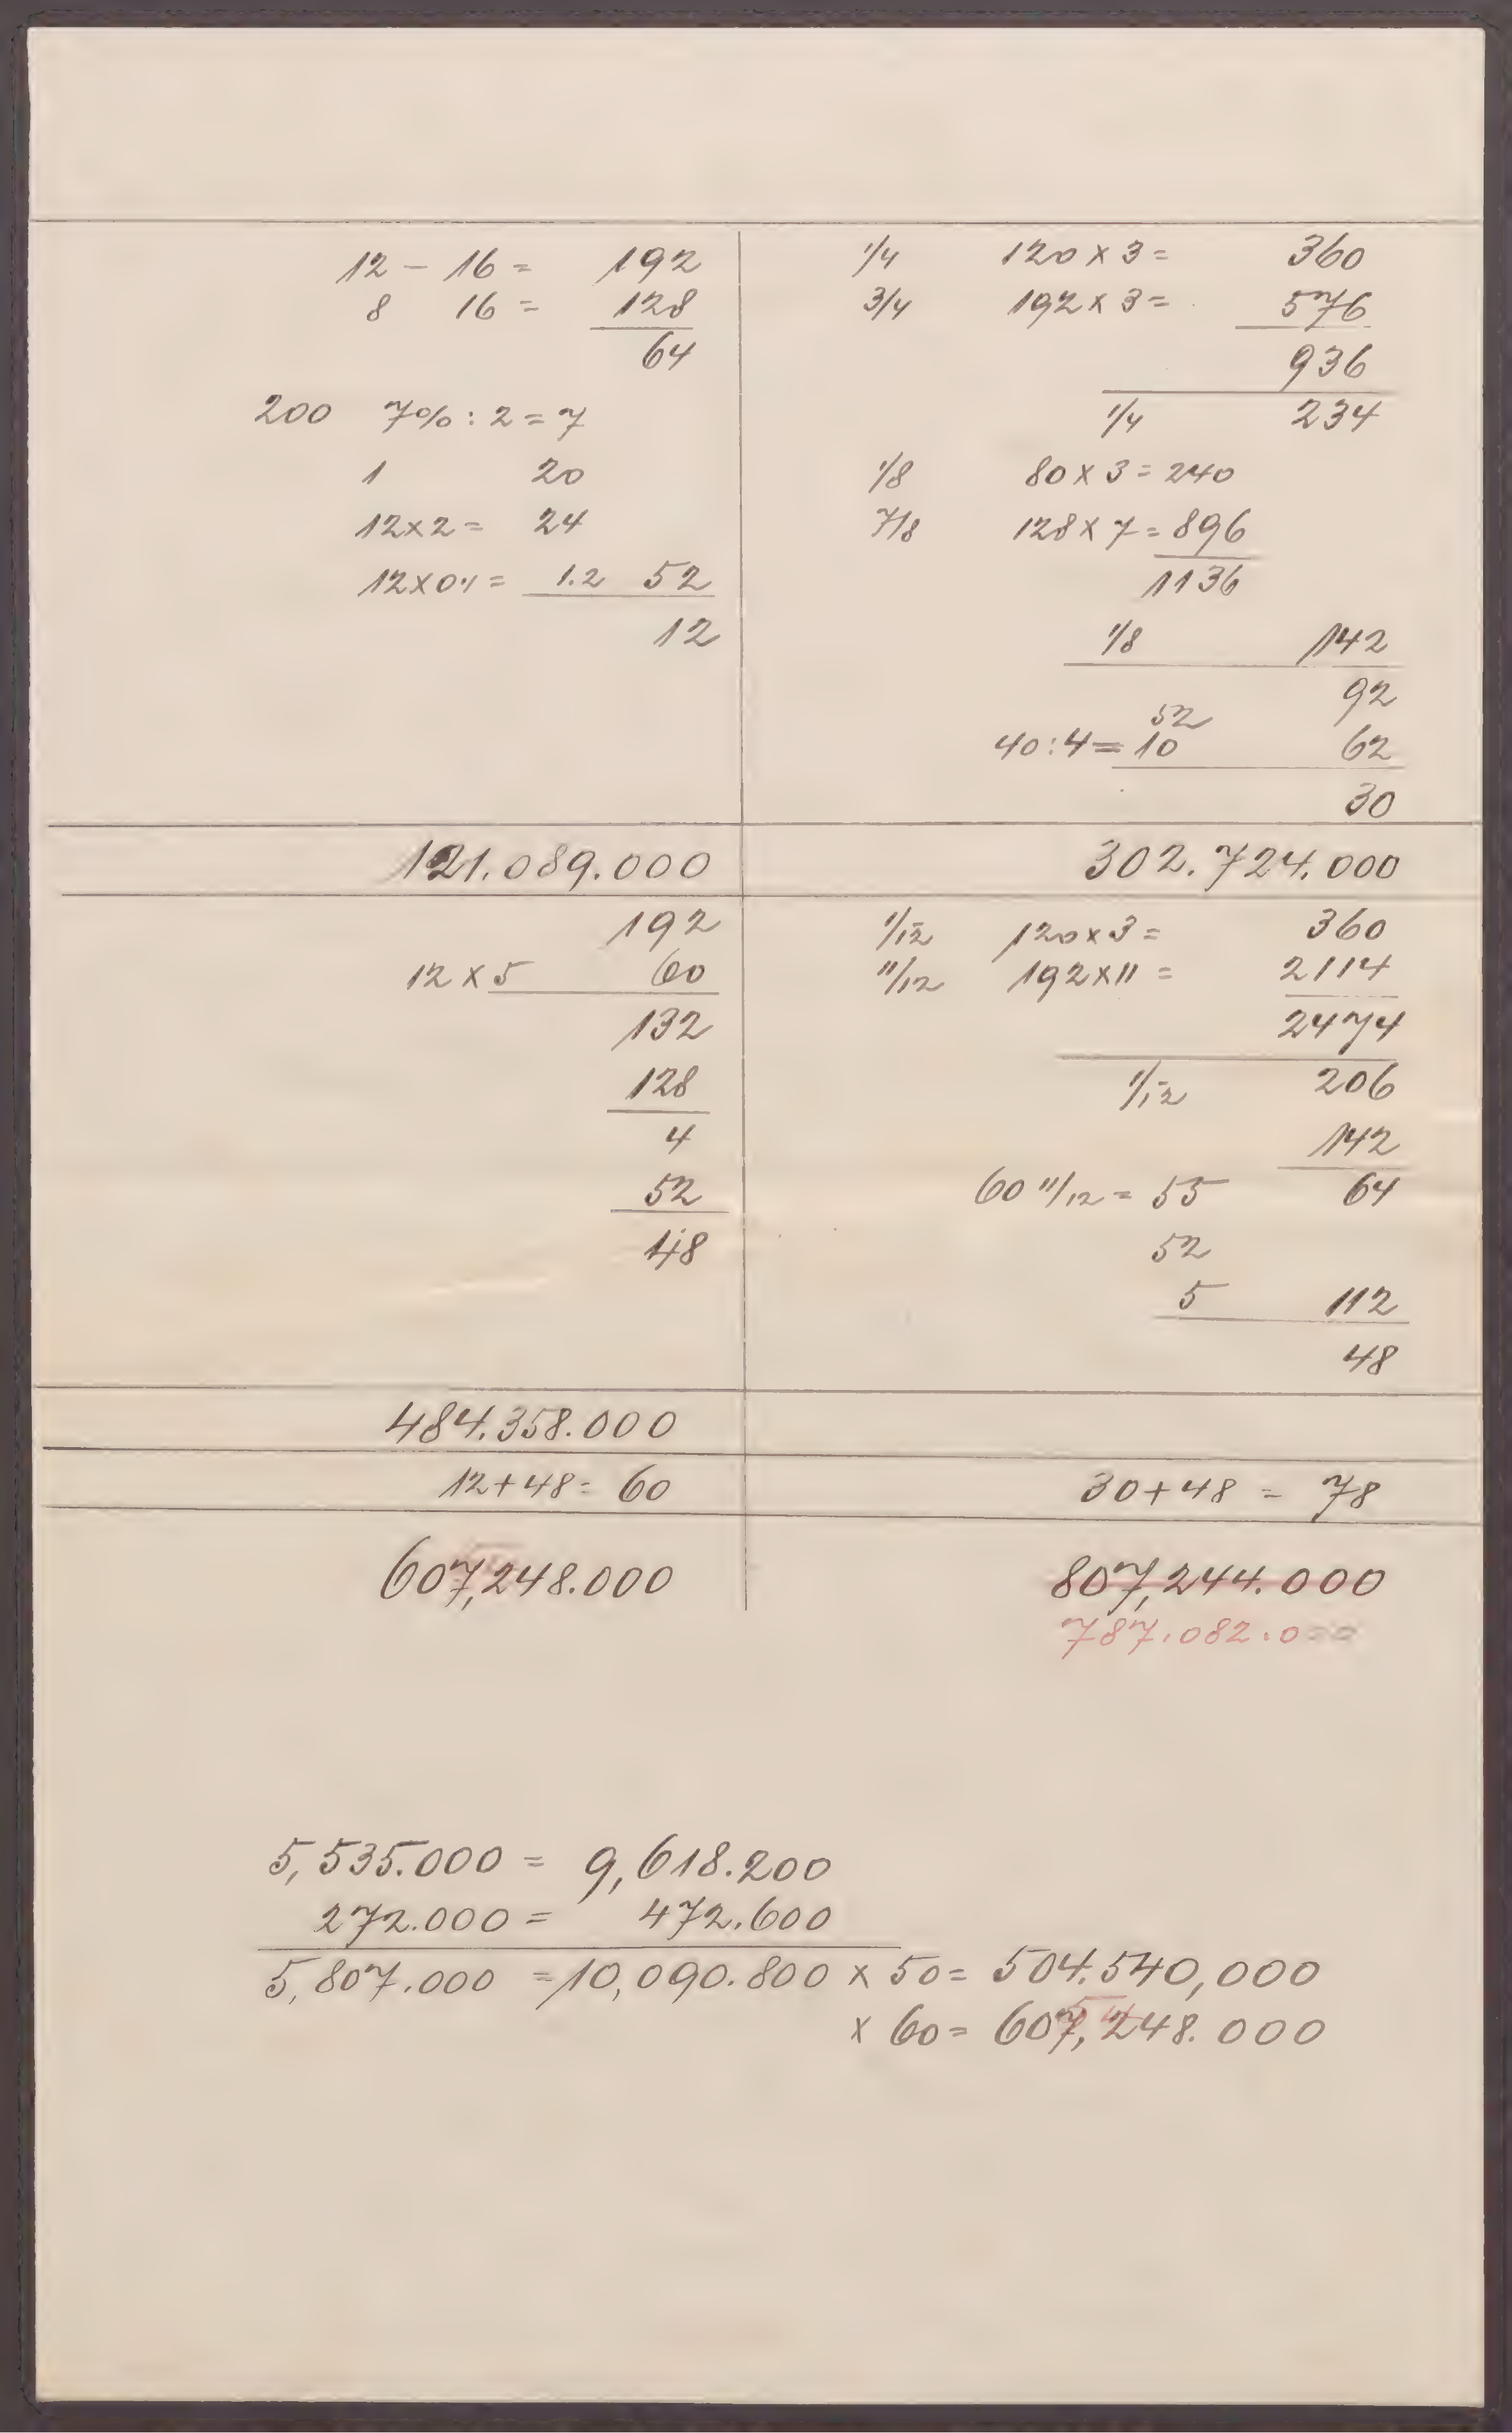 12 – 16 = 192
8 16 = 128
64
200 7% : 2 = 7
1 20
12 x 2 = 24
12 x 0·1 = 1.2 52
12
1/4 120 x 3 = 360
3/4 192 x 3 = 576
936
1/4 234
1/8 80 x 3 = 240
7/8 128 x 7 = 896
1136
1/8 142
92
52
40 : 4 = 10 62
30
121.089.000
302.724.000
192
12 x 5 60
132
128
4
52
48
1/12 120 x 3 = 360
11/12 192 x 11 = 2114
2474
1/12 206
142
60 11/12 = 55 64
52
5 112
48
484.358.000
12 + 48 = 60
30 + 48 = 78
607,248.000
807,244.000
787.082.000
5,535.000 = 9,618.200
272.000 = 472.600
5,807.000 = 10,090.800 x 50 = 504.540,000
x 60 = 607,248.000